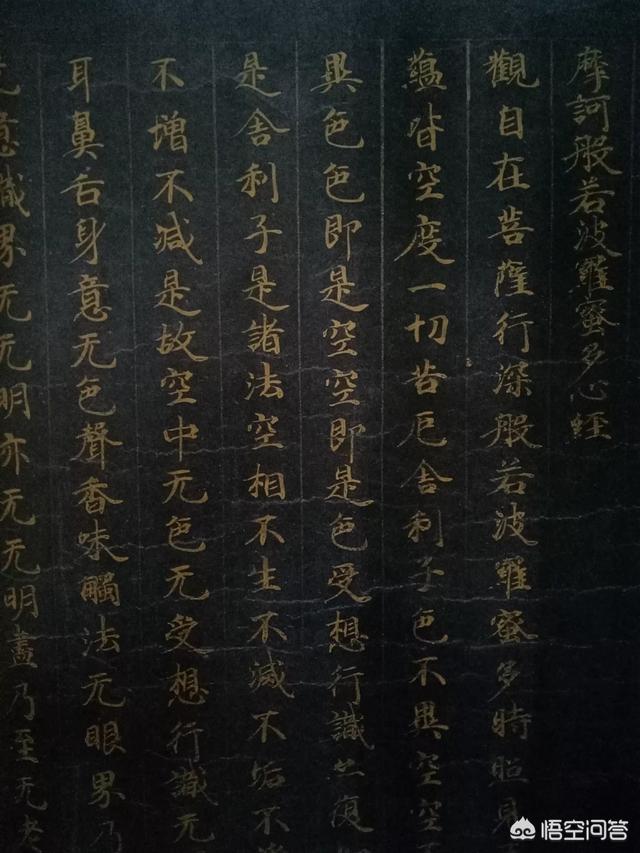 摩訶般若波羅蜜多心經
觀自在菩薩行深般若波羅蜜多時照見
蘊皆空度一切苦厄舍利子色不異空空
異色色即是空空即是色受想行識亦復
是舍利子是諸法空相不生不滅不垢不
不增不減是故空中无色无受想行識无
耳鼻舌身意无色聲香味觸法无眼界乃
无意識界无无明亦无无明盡乃至无老
悟空问答